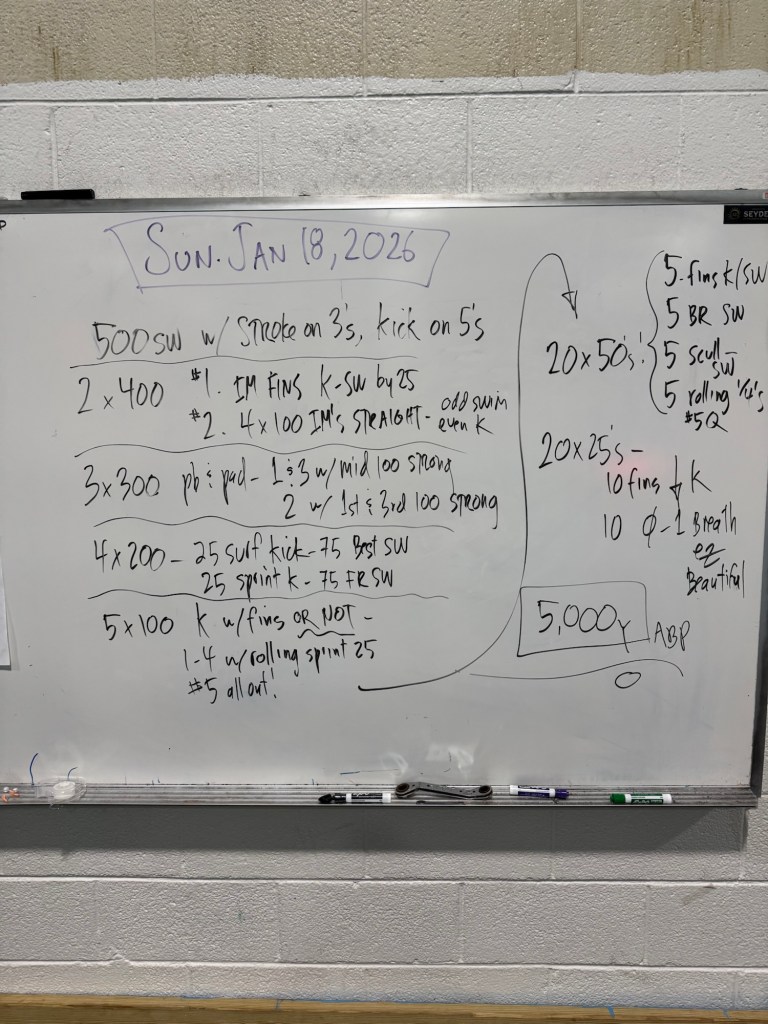 SUN. JAN 18, 2026
500 SW w/ STROKE on 3's, kick on 5's
2 x 400 #1. IM FINS K-SW by 25
#2. 4 x 100 IM's STRAIGHT - odd swim
even K
3 x 300 pb & pad - 1 & 3 w/ mid 100 strong
2 w/ 1st & 3rd 100 STRONG
4 x 200 - 25 surf kick - 75 Best SW
25 sprint k - 75 FR SW
5 x 100 K w/ fins OR NOT -
1-4 w/ rolling sprint 25
#5 all out!
20 x 50's:
5 - fins k/SW
5 BR SW
5 scull -
SW
5 rolling 1/4's
#5Q
20 x 25's -
10 fins ↓ K
10 Ø - 1 Breath
ez
Beautiful
5,000Y ABP
SEYDE